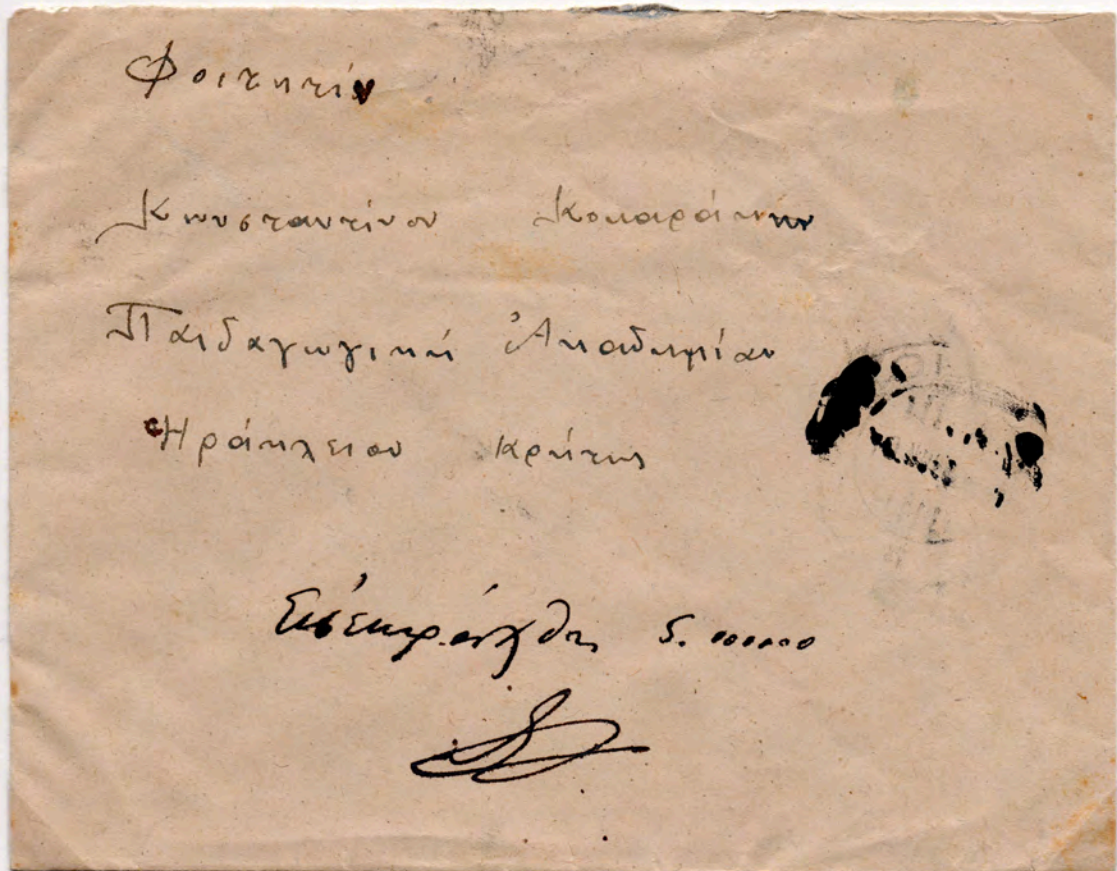 Φοιτητήν
Κωνσταντίνον Κοκαράκην
Παιδαγωγική Ἀκαδημίαν
Ἡράκλειον Κρήτης
Εἰσεπράχθη 5.000000